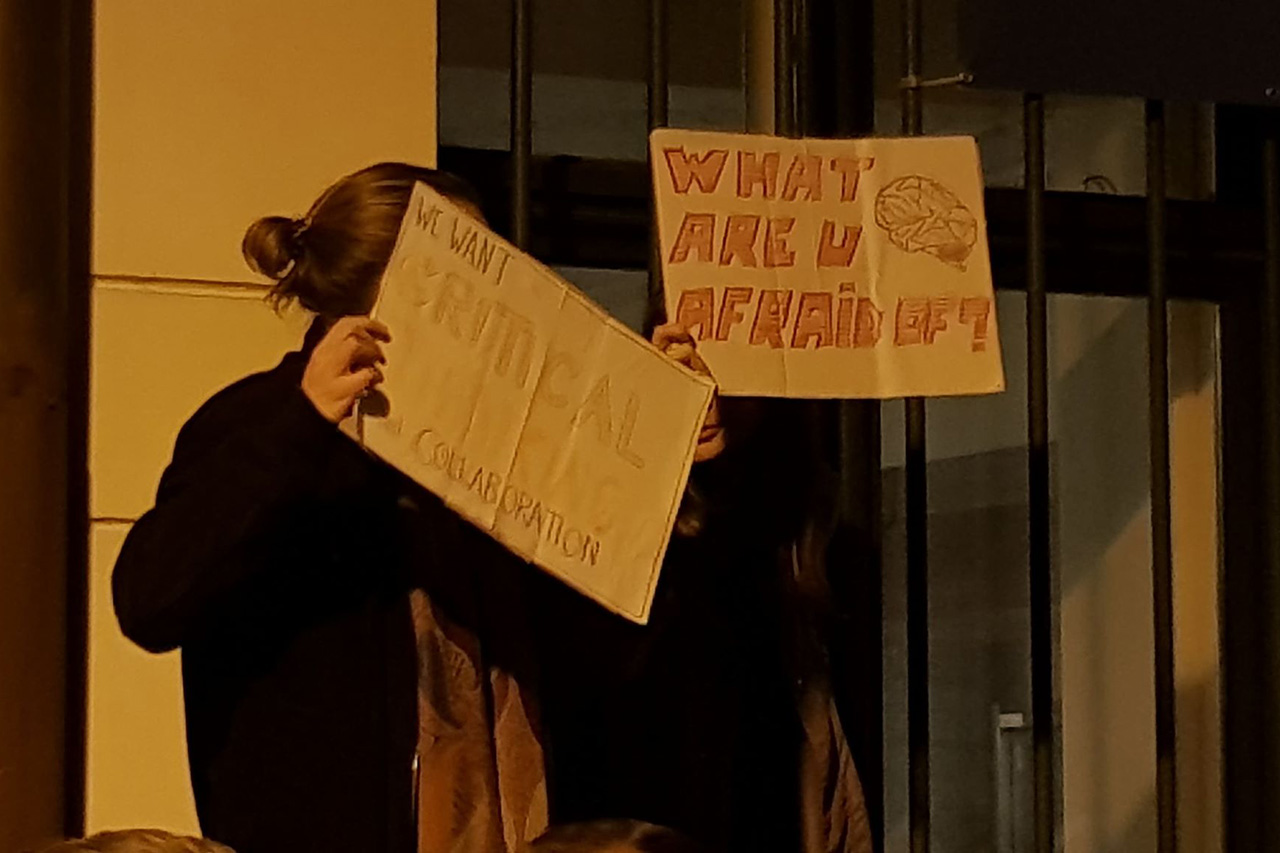 WE WANT
CRITICAL
COLLABORATION
WHAT
ARE U
AFRAID OF?